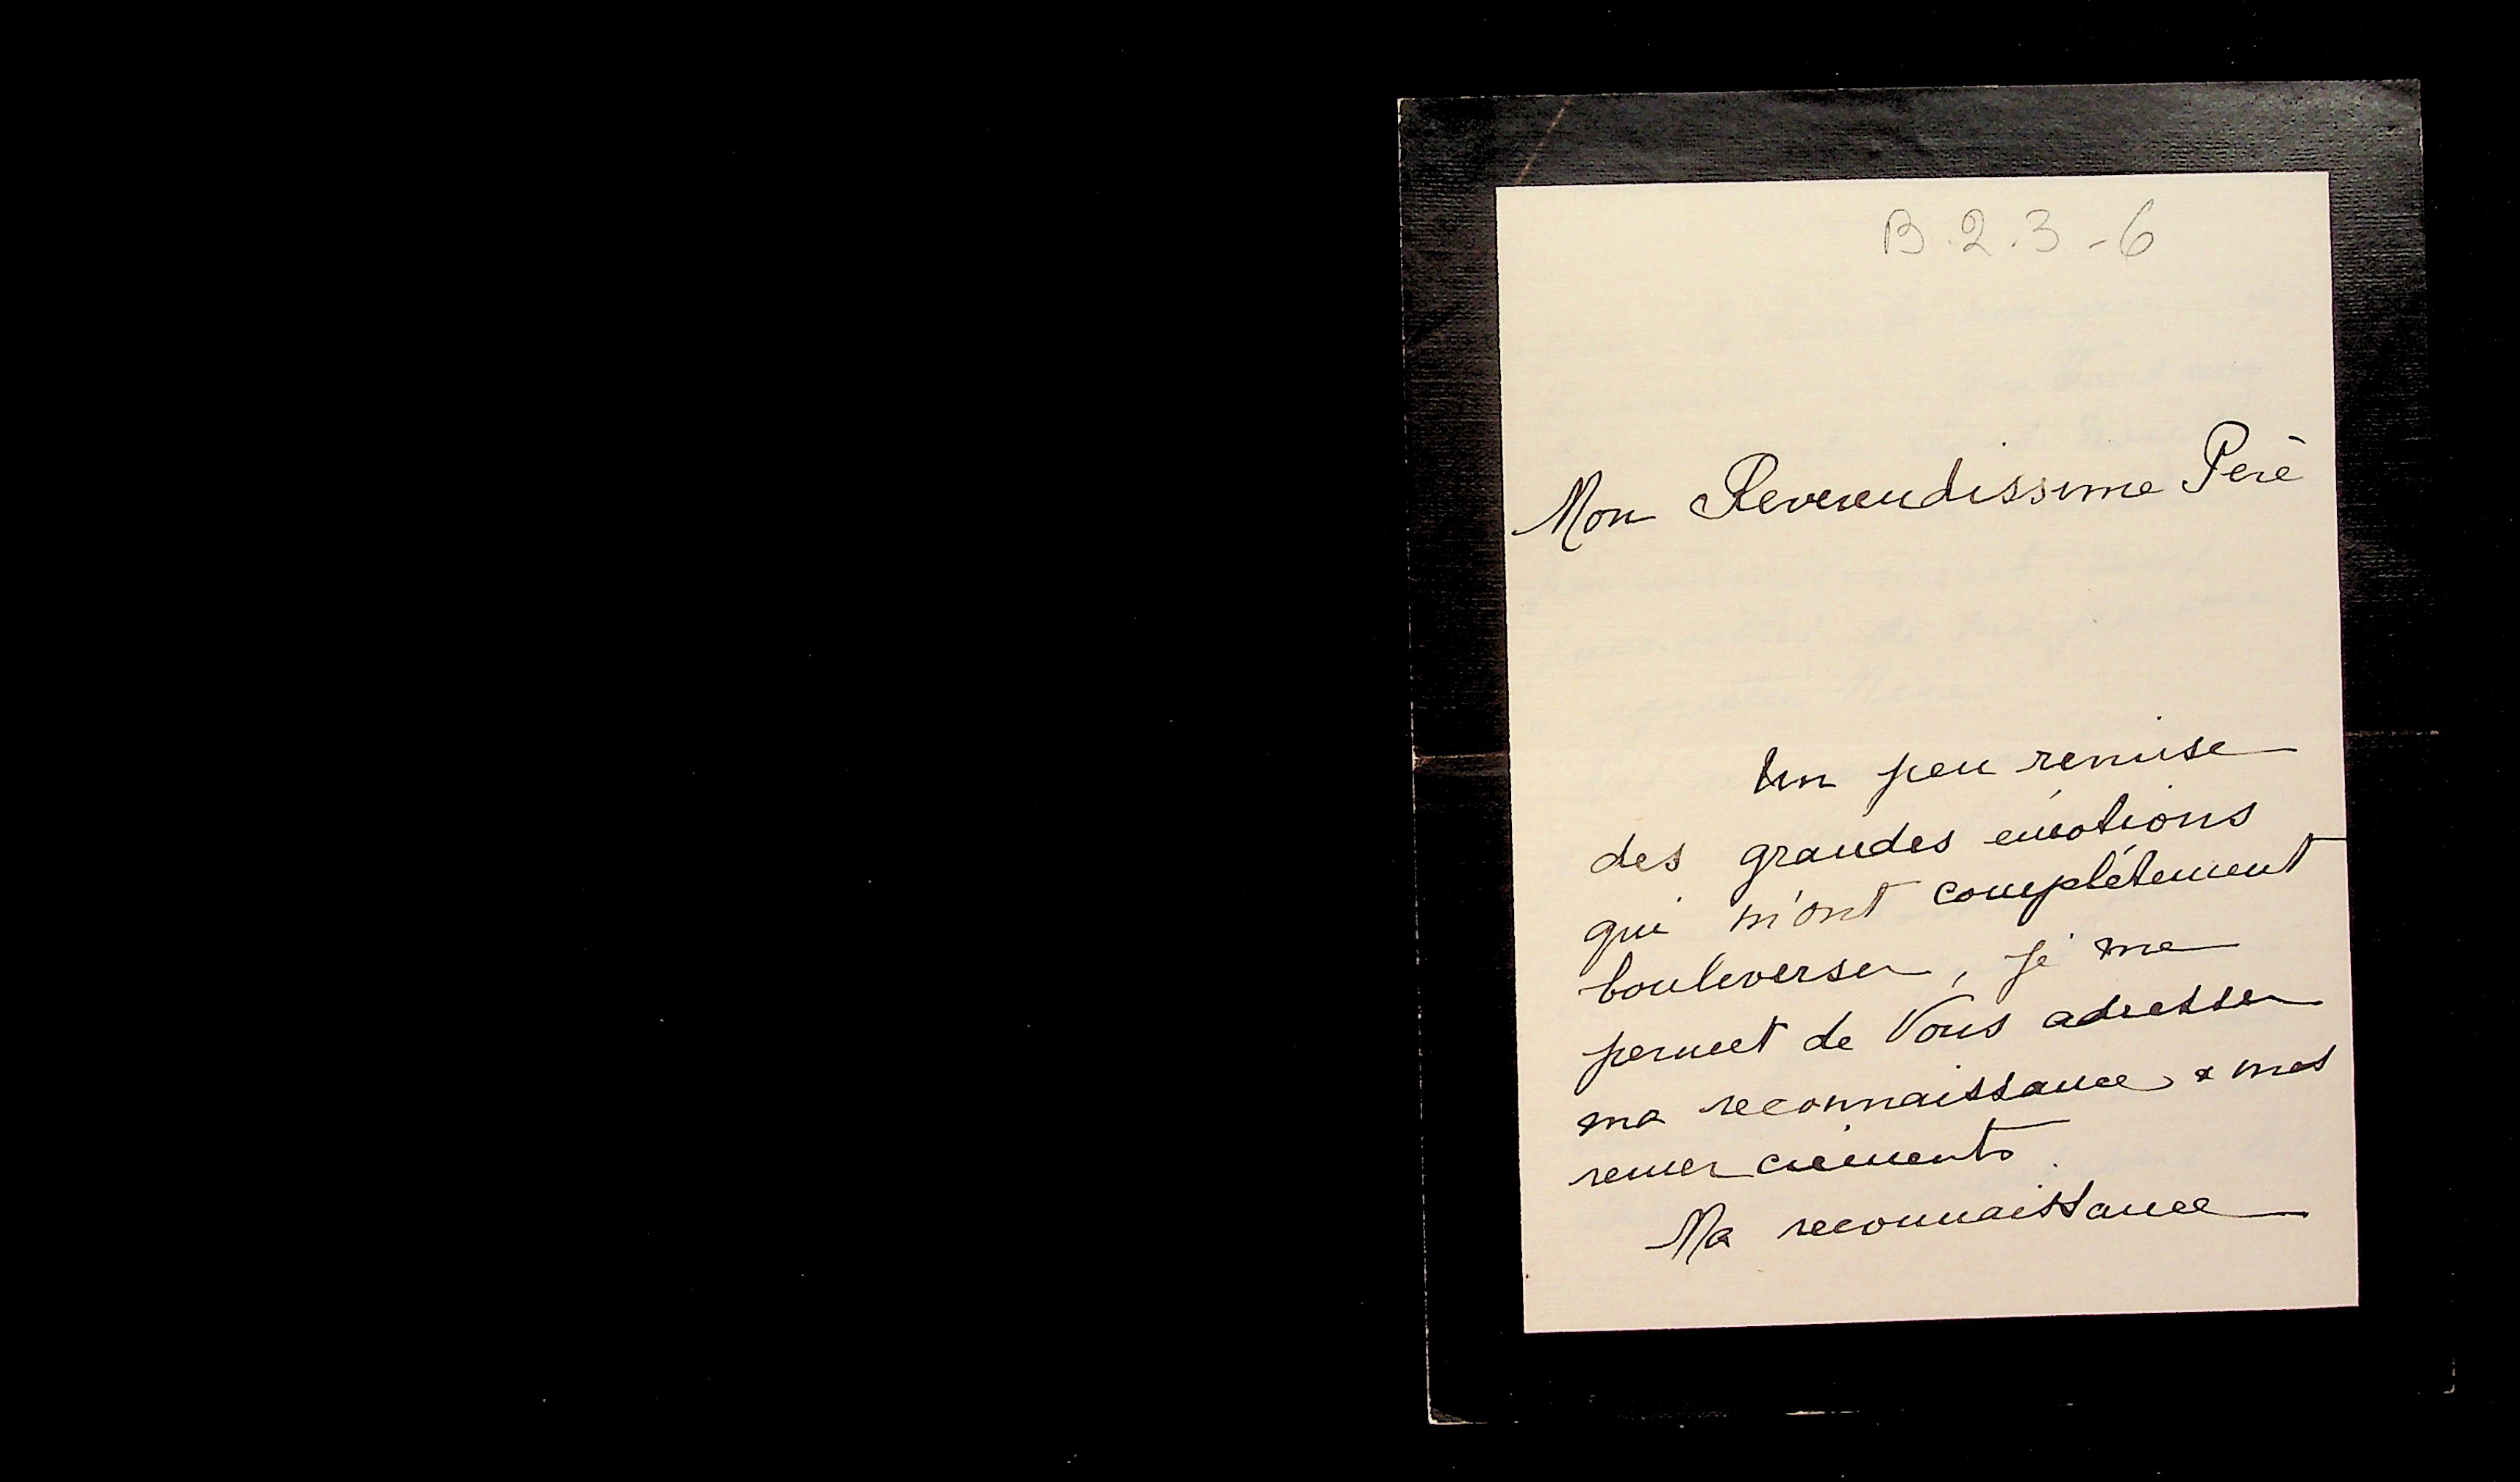 B.2.3-6
Mon Reverendissime Perè
Un peu remise
des grandes émotions
qui m'ont complétement
bouleverser, je me
permet de Vous adresser
ma reconnaissance & mes
remerciements.
Ma reconnaissance